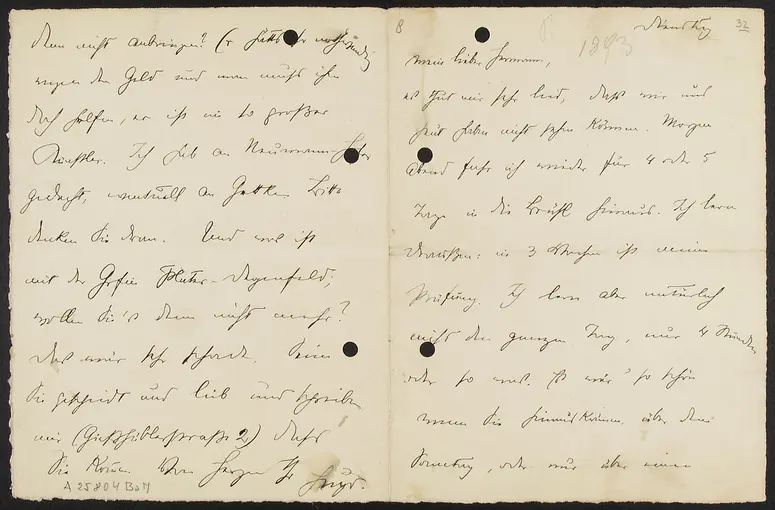 8 1893 Dienstag 32
mein lieber Hermann,
es thut mir sehr leid, dass wir uns
heut haben nicht sehen können. Morgen
abend fahr ich wieder für 4 oder 5
Tage in die Brühl hinaus. Ich lern
draußen: in 3 Wochen ist meine
Prüfung. Ich lern aber natürlich
nicht den ganzen Tag, nur 4 Stunden
oder so was. Es wär' so schön
wenn Sie hinauskämen, über den
Sonntag, oder nur über einen
denn nicht anbringen? (
wegen dem Geld und man muss ihm
doch helfen, er ist ein so großer
Künstler. Ich hab an Neumann-Hofer
gedacht, eventuell an Bitte
denken Sie dran. Und was ist
mit der Gräfin Plater-Degenfeld,
wollen Sie's denn nicht mehr?
das wär sehr schade. Seien
Sie gescheidt und lieb und schreiben
mir (Gießhüblerstraße 2) dass
Sie kommen. Von Herzen Ihr
Hugo.
A 25804 BaM